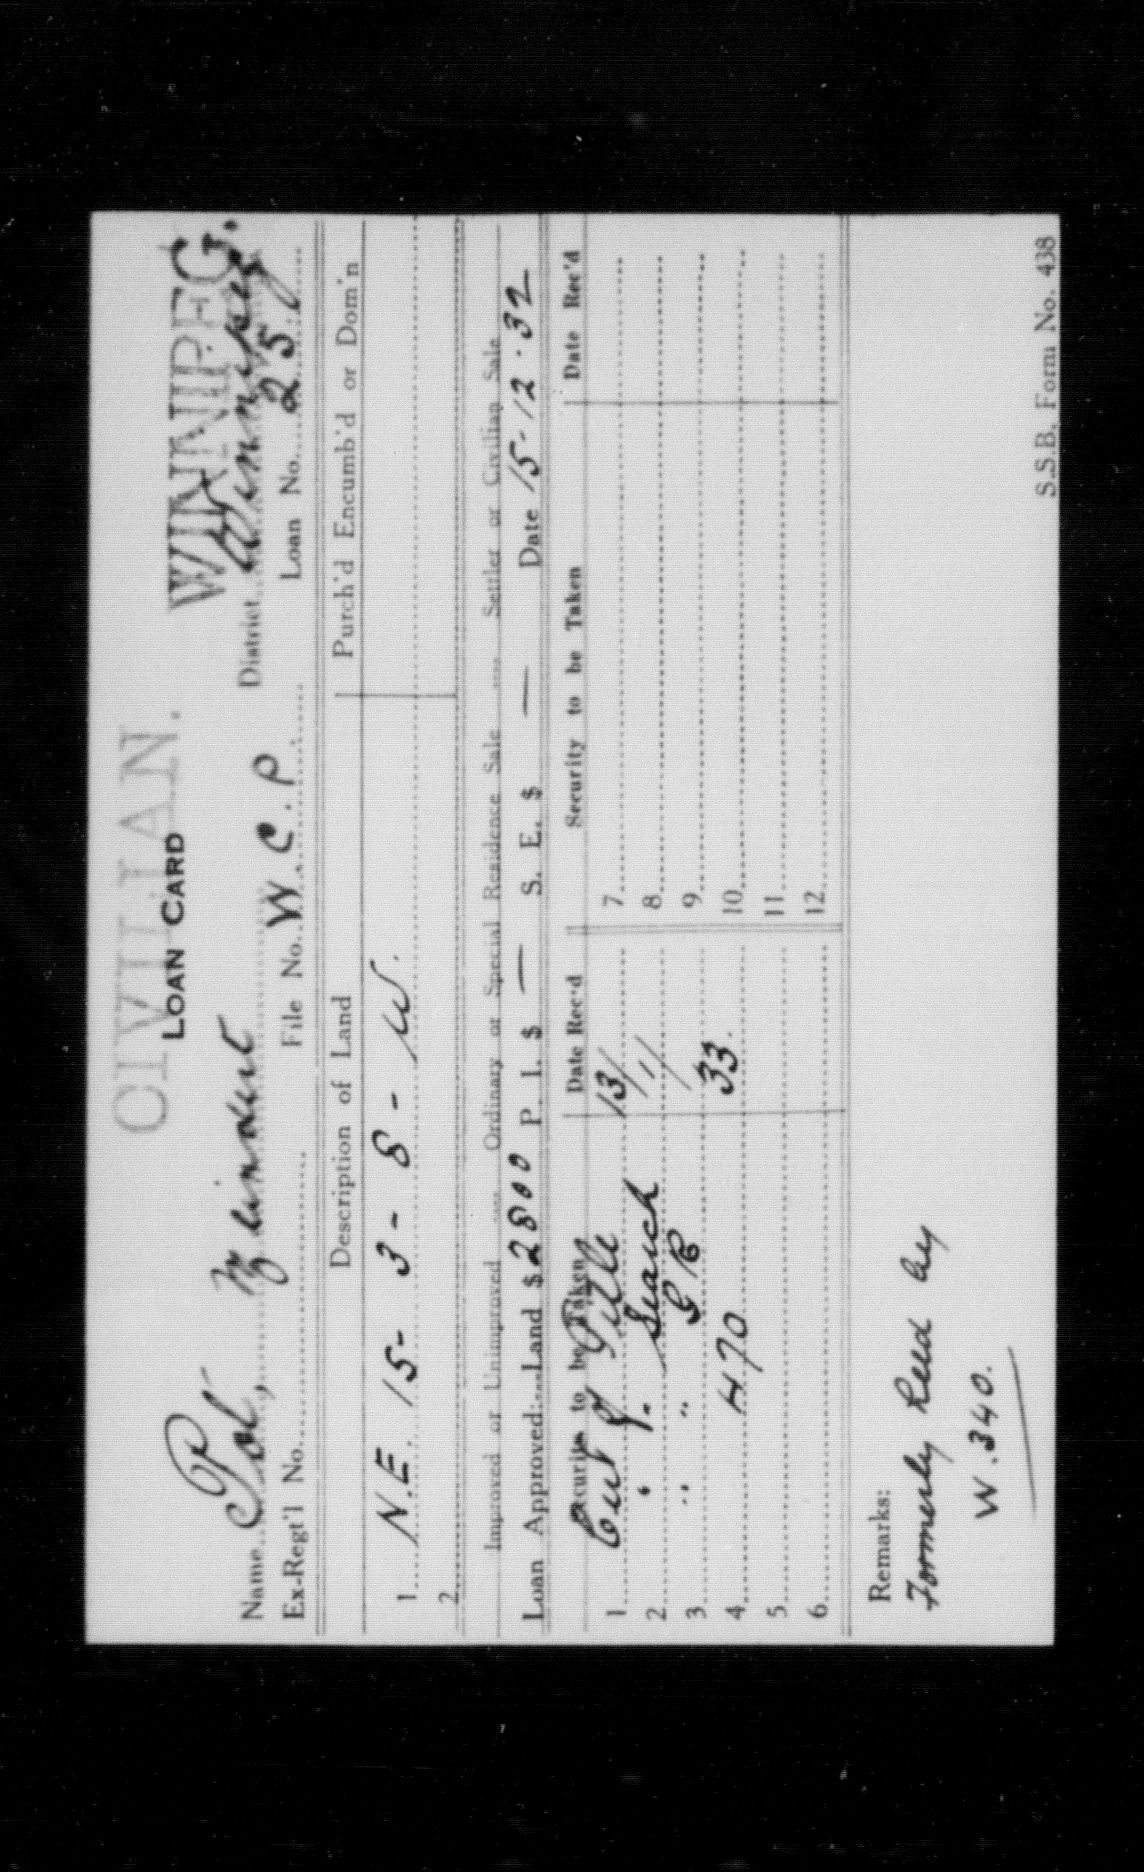 CIVILIAN.
LOAN CARD
WINNIPEG.
Name Pol, District Winnipeg
Ex-Regt'l No. File No. W.C.P. Loan No. 257
Description of Land Purch'd Encumb'd or Dom'n
1 N.E. 15- 3- 8- W.
2
Improved or Unimproved .... Ordinary or Special Residence Sale .... Settler or Civilian Sale
Loan Approved:....Land $2800 P. I. $ — S. E. $ — Date 15-12-32
Security to be Taken Date Rec'd Security to be Taken Date Rec'd
1 Cert of Title 13/ 7
2 " " Search 11/ 8
3 " " G R 33. 9
4 470 10
5 11
6 12
Remarks:
Formerly Held by
W.340.
S.S.B. Form No. 438